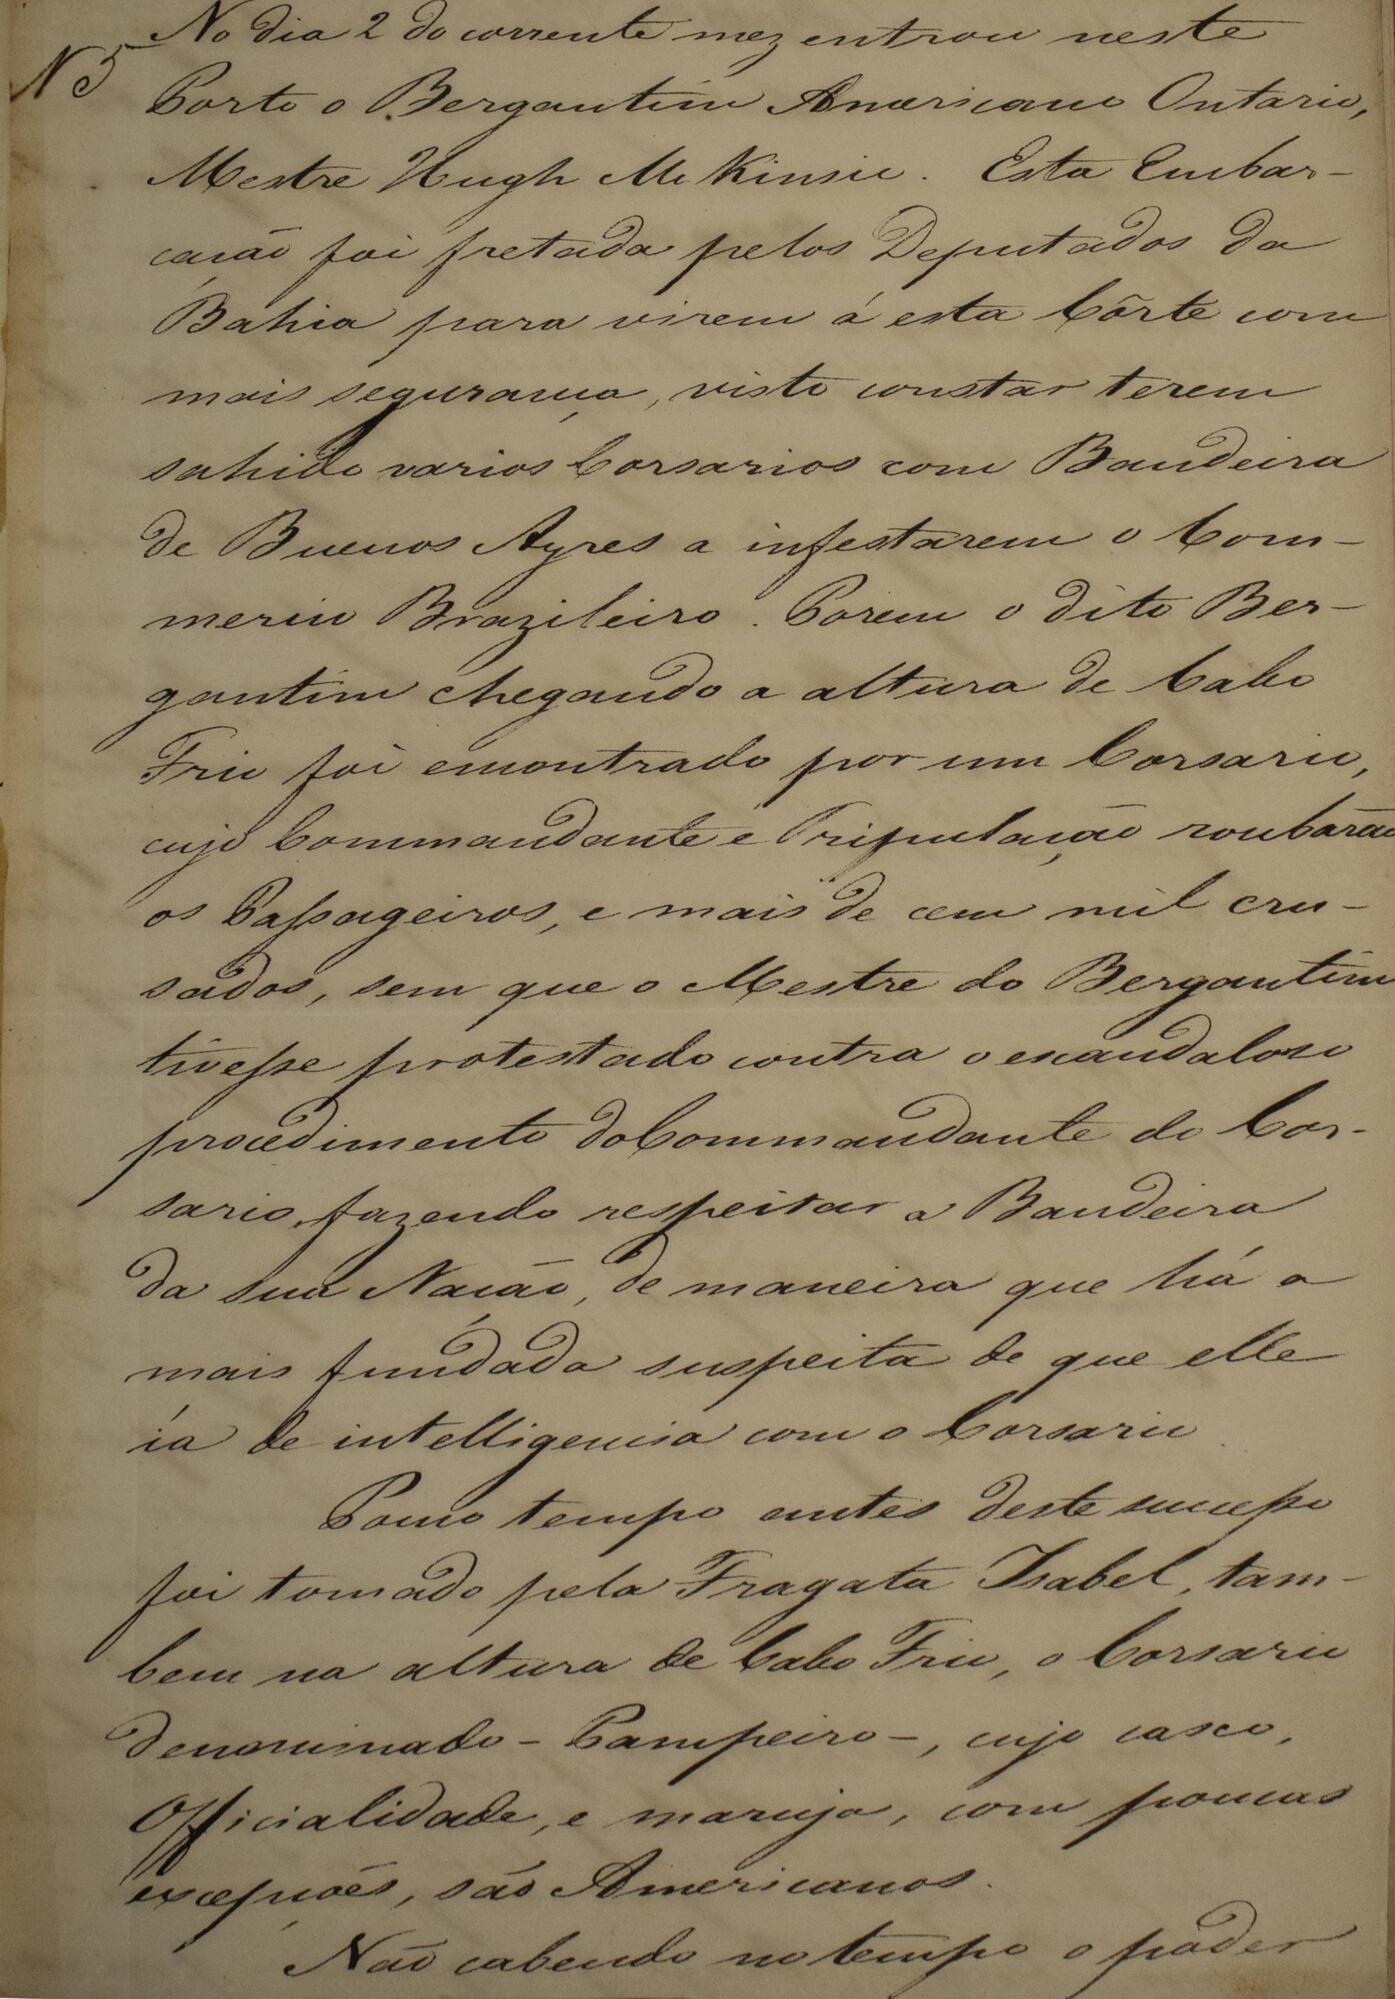 No dia 2 do corrente mez entrou neste
N 5
Porto o Bergantim Americano Ontario,
Mestre Hugh McKinsie. Esta Embar-
cação foi fretada pelos Deputados da
Bahia para virem á esta Côrte com
mais segurança, visto constar terem
sahido varios Corsarios com Bandeira
de Buenos Ayres a infestarem o Com-
mercio Brazileiro. Porem o dito Ber-
gantim chegando a altura de Cabo
Frio foi encontrado por um Corsario,
cujo Commandante e Tripulação roubarão
os Passageiros, e mais de cem mil cru-
sados, sem que o Mestre do Bergantim
tivesse protestado contra o escandaloso
procedimento do Commandante do Cor-
sario, fazendo respeitar a Bandeira
da sua Nação, de maneira que há a
mais fundada suspeita de que elle
ía de intelligencia com o Corsario.
Pouco tempo antes deste successo
foi tomado pela Fragata Isabel, tam-
bem na altura de Cabo Frio, o Corsario
denominado - Pampeiro -, cujo casco,
Officialidade, e maruja, com poucas
excepções, são Americanos.
Não cabendo no tempo o poder